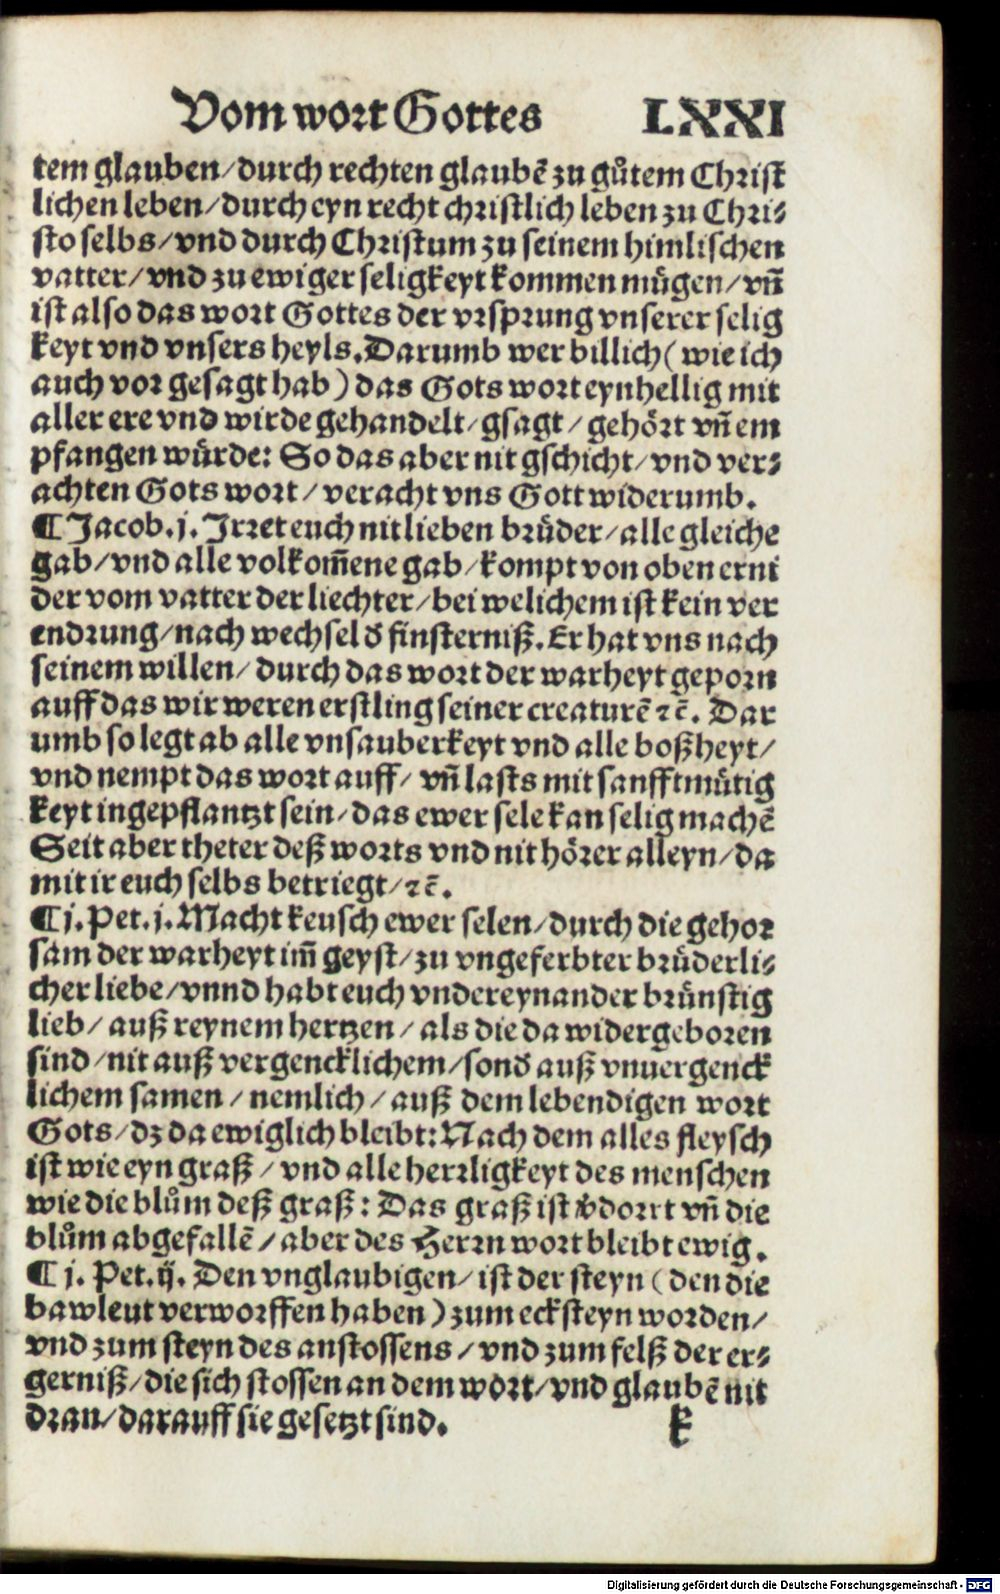 Vom wort Gottes LXXI
tem glauben/durch rechten glaubẽ zu gůtem Christ
lichen leben/durch eyn recht christlich leben zu Chri⸗
sto selbs/vnd durch Christum zu seinem himlischen
vatter/vnd zu ewiger seligkeyt kommen mügen/vñ
ist also das wort Gottes der vrsprung vnserer selig
keyt vnd vnsers heyls. Darumb wer billich (wie ich
auch vor gesagt hab) das Gots wort eynhellig mit
aller ere vnd wirde gehandelt/gsagt/gehört vñ em
pfangen würde: So das aber nit gschicht/vnd ver⸗
achten Gots wort/veracht vns Gott widerumb.
¶ Jacob. j. Irret euch nit lieben brüder/alle gleiche
gab/vnd alle volkom̃ene gab/kompt von oben erni
der vom vatter der liechter/bei welichem ist kein ver
endrung/nach wechsel ď finsterniß. Er hat vns nach
seinem willen/durch das wort der warheyt geporn
auff das wir weren erstling seiner creaturẽ ⁊c̃. Dar
umb so legt ab alle vnsauberkeyt vnd alle boßheyt/
vnd nempt das wort auff/vñ lasts mit sanfftmütig
keyt ingepflantzt sein/das ewer sele kan selig machẽ
Seit aber theter deß worts vnd nit hörer alleyn/da
mit ir euch selbs betriegt/⁊c̃.
¶ j. Pet. j. Macht keusch ewer selen/durch die gehor
sam der warheyt im̃ geyst/zu vngeferbter brüderli⸗
cher liebe/vnnd habt euch vndereynander brünstig
lieb/auß reynem hertzen/als die da widergeboren
sind/nit auß vergencklichem/sonď auß vnuergenck
lichem samen/nemlich/auß dem lebendigen wort
Gots/dz da ewiglich bleibt: Nach dem alles fleysch
ist wie eyn graß/vnd alle herrligkeyt des menschen
wie die blům deß graß: Das graß ist v̉dorrt vñ die
blům abgefallẽ/aber des Herrn wort bleibt ewig.
¶ j. Pet. ij. Den vnglaubigen/ist der steyn (den die
bawleut verworffen haben) zum ecksteyn worden/
vnd zum steyn des anstossens/vnd zum felß der er⸗
gerniß/die sich stossen an dem wort/vnd glaubẽ nit
dran/darauff sie gesetzt sind. k
Digitalisierung gefördert durch die Deutsche Forschungsgemeinschaft - DFG